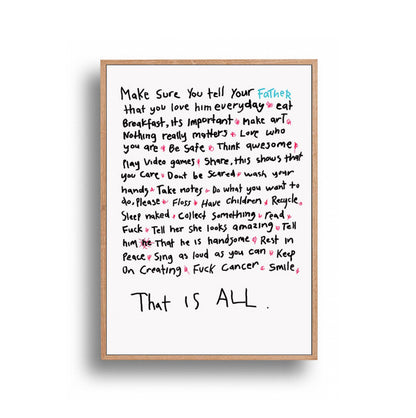 Make Sure You tell Your Father
that you love him everyday eat
Breakfast, its Important Make art
Nothing really matters Love who
you are Be Safe Think awesome
Play Video games Share, this shows that
you Care Dont be Scared wash your
hands Take notes Do what you want to
do, Please Floss Have Children Recycle
Sleep naked Collect Something read
Fuck Tell her She looks amazing Tell
him he That he is handsome Rest in
Peace Sing as loud as you can Keep
On Creating Fuck Cancer Smile
That IS ALL.